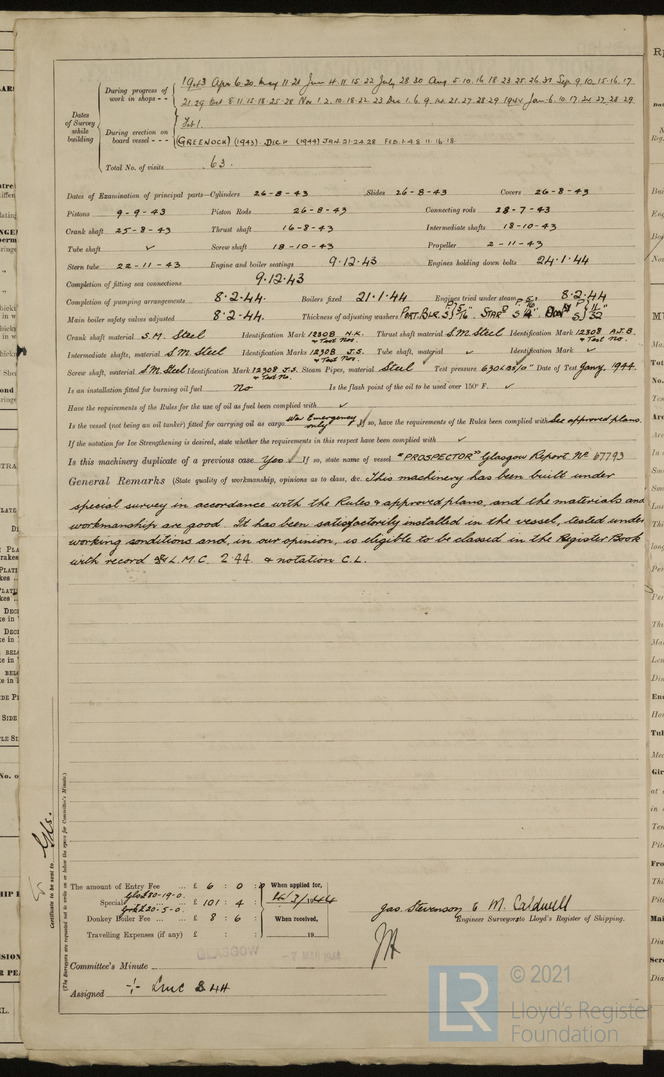 Dates of Survey while building
During progress of work in shops - -
1943 Apr 6.20. May 11.21 Jun 4.11.15.22 July 28.30 Aug 5.10.16.18 23.25.26.31 Sep. 9.10.15.16.17.
21.29 Oct 8.11.15.18.25.28 Nov 1 2.10.18.22 23 Dec 1.6.9.14.21.27.28.29 1944 Jan. 6.10.17.24.27.28.29
Feb 1.
During erection on board vessel - - -
(GREENOCK) (1943) DEC 4 (1944) JAN 21.24.28 FEB 1.4.8 11.16.18
Total No. of visits 63.
Dates of Examination of principal parts—Cylinders 26-8-43 Slides 26-8-43 Covers 26-8-43
Pistons 9-9-43 Piston Rods 26-8-43 Connecting rods 28-7-43
Crank shaft 25-8-43 Thrust shaft 16-8-43 Intermediate shafts 18-10-43
Tube shaft ✓ Screw shaft 18-10-43 Propeller 2-11-43
Stern tube 22-11-43 Engine and boiler seatings 9.12.43 Engines holding down bolts 24.1.44
Completion of fitting sea connections 9.12.43
Completion of pumping arrangements 8.2.44. Boilers fixed 21.1.44 Engines tried under steam 8.2.44
Main boiler safety valves adjusted 8.2.44. Thickness of adjusting washers PORT. BLR.
Crank shaft material S.M. Steel Identification Mark 12308 N.K. & Test Nos. Thrust shaft material S.M. Steel Identification Mark 12308 A.J.B. & Test No.
Intermediate shafts, material S.M. Steel Identification Marks 12308 J.S. & Test Nos. Tube shaft, material ✓ Identification Mark ✓
Screw shaft, material S.M. Steel Identification Mark 12308 J.S. & Test No. Steam Pipes, material Steel Test pressure 630 LBS/□" Date of Test Jany. 1944.
Is an installation fitted for burning oil fuel No Is the flash point of the oil to be used over 150° F. ✓
Have the requirements of the Rules for the use of oil as fuel been complied with ✓
Is the vessel (not being an oil tanker) fitted for carrying oil as cargo War Emergency only If so, have the requirements of the Rules been complied with See approved plans.
If the notation for Ice Strengthening is desired, state whether the requirements in this respect have been complied with ✓
Is this machinery duplicate of a previous case Yes ✓ If so, state name of vessel "PROSPECTOR" Glasgow Report No 67793
General Remarks (State quality of workmanship, opinions as to class, &c. This machinery has been built under
special survey in accordance with the Rules & approved plans, and the materials and
workmanship are good. It has been satisfactorily installed in the vessel, tested under
working conditions and, in our opinion, is eligible to be classed in the Register Book
with record L.M.C. 2 44. & notation C.L.
Certificate to be sent to Gls.
(The Surveyors are requested not to write on or below the space for Committee's Minute.)
The amount of Entry Fee ... £ 6 : 0 : When applied for,
Special £ 101 : 4 :
Donkey Boiler Fee ... £ 8 : 6 : When received,
Travelling Expenses (if any) £ : : 19
Jas. Stevenson & M. Caldwell
Engineer Surveyors to Lloyd's Register of Shipping.
Committee's Minute GLASGOW - 7 MAR 1944
Assigned + LMC 2 44
© 2021
LR Lloyd's Register
Foundation